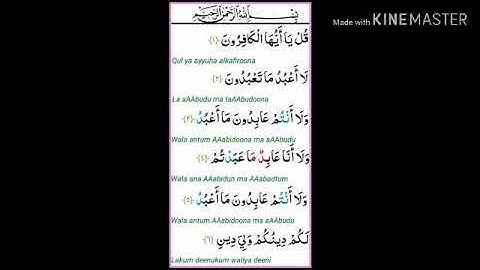 بِسْمِ اللهِ الرَّحْمٰنِ الرَّحِيْمِ
Made with KINEMASTER
قُلْ يَا أَيُّهَا الْكَافِرُونَ ﴿١﴾
Qul ya ayyuha alkafiroona
لَا أَعْبُدُ مَا تَعْبُدُونَ ﴿٢﴾
La aAAbudu ma taAAbudoona
وَلَا أَنْتُمْ عَابِدُونَ مَا أَعْبُدُ ﴿٣﴾
Wala antum AAabidoona ma aAAbudu
وَلَا أَنَا عَابِدٌ مَا عَبَدْتُمْ ﴿٤﴾
Wala ana AAabidun ma AAabadtum
وَلَا أَنْتُمْ عَابِدُونَ مَا أَعْبُدُ ﴿٥﴾
Wala antum AAabidoona ma aAAbudu
لَكُمْ دِينُكُمْ وَلِيَ دِينِ ﴿٦﴾
Lakum deenukum waliya deeni